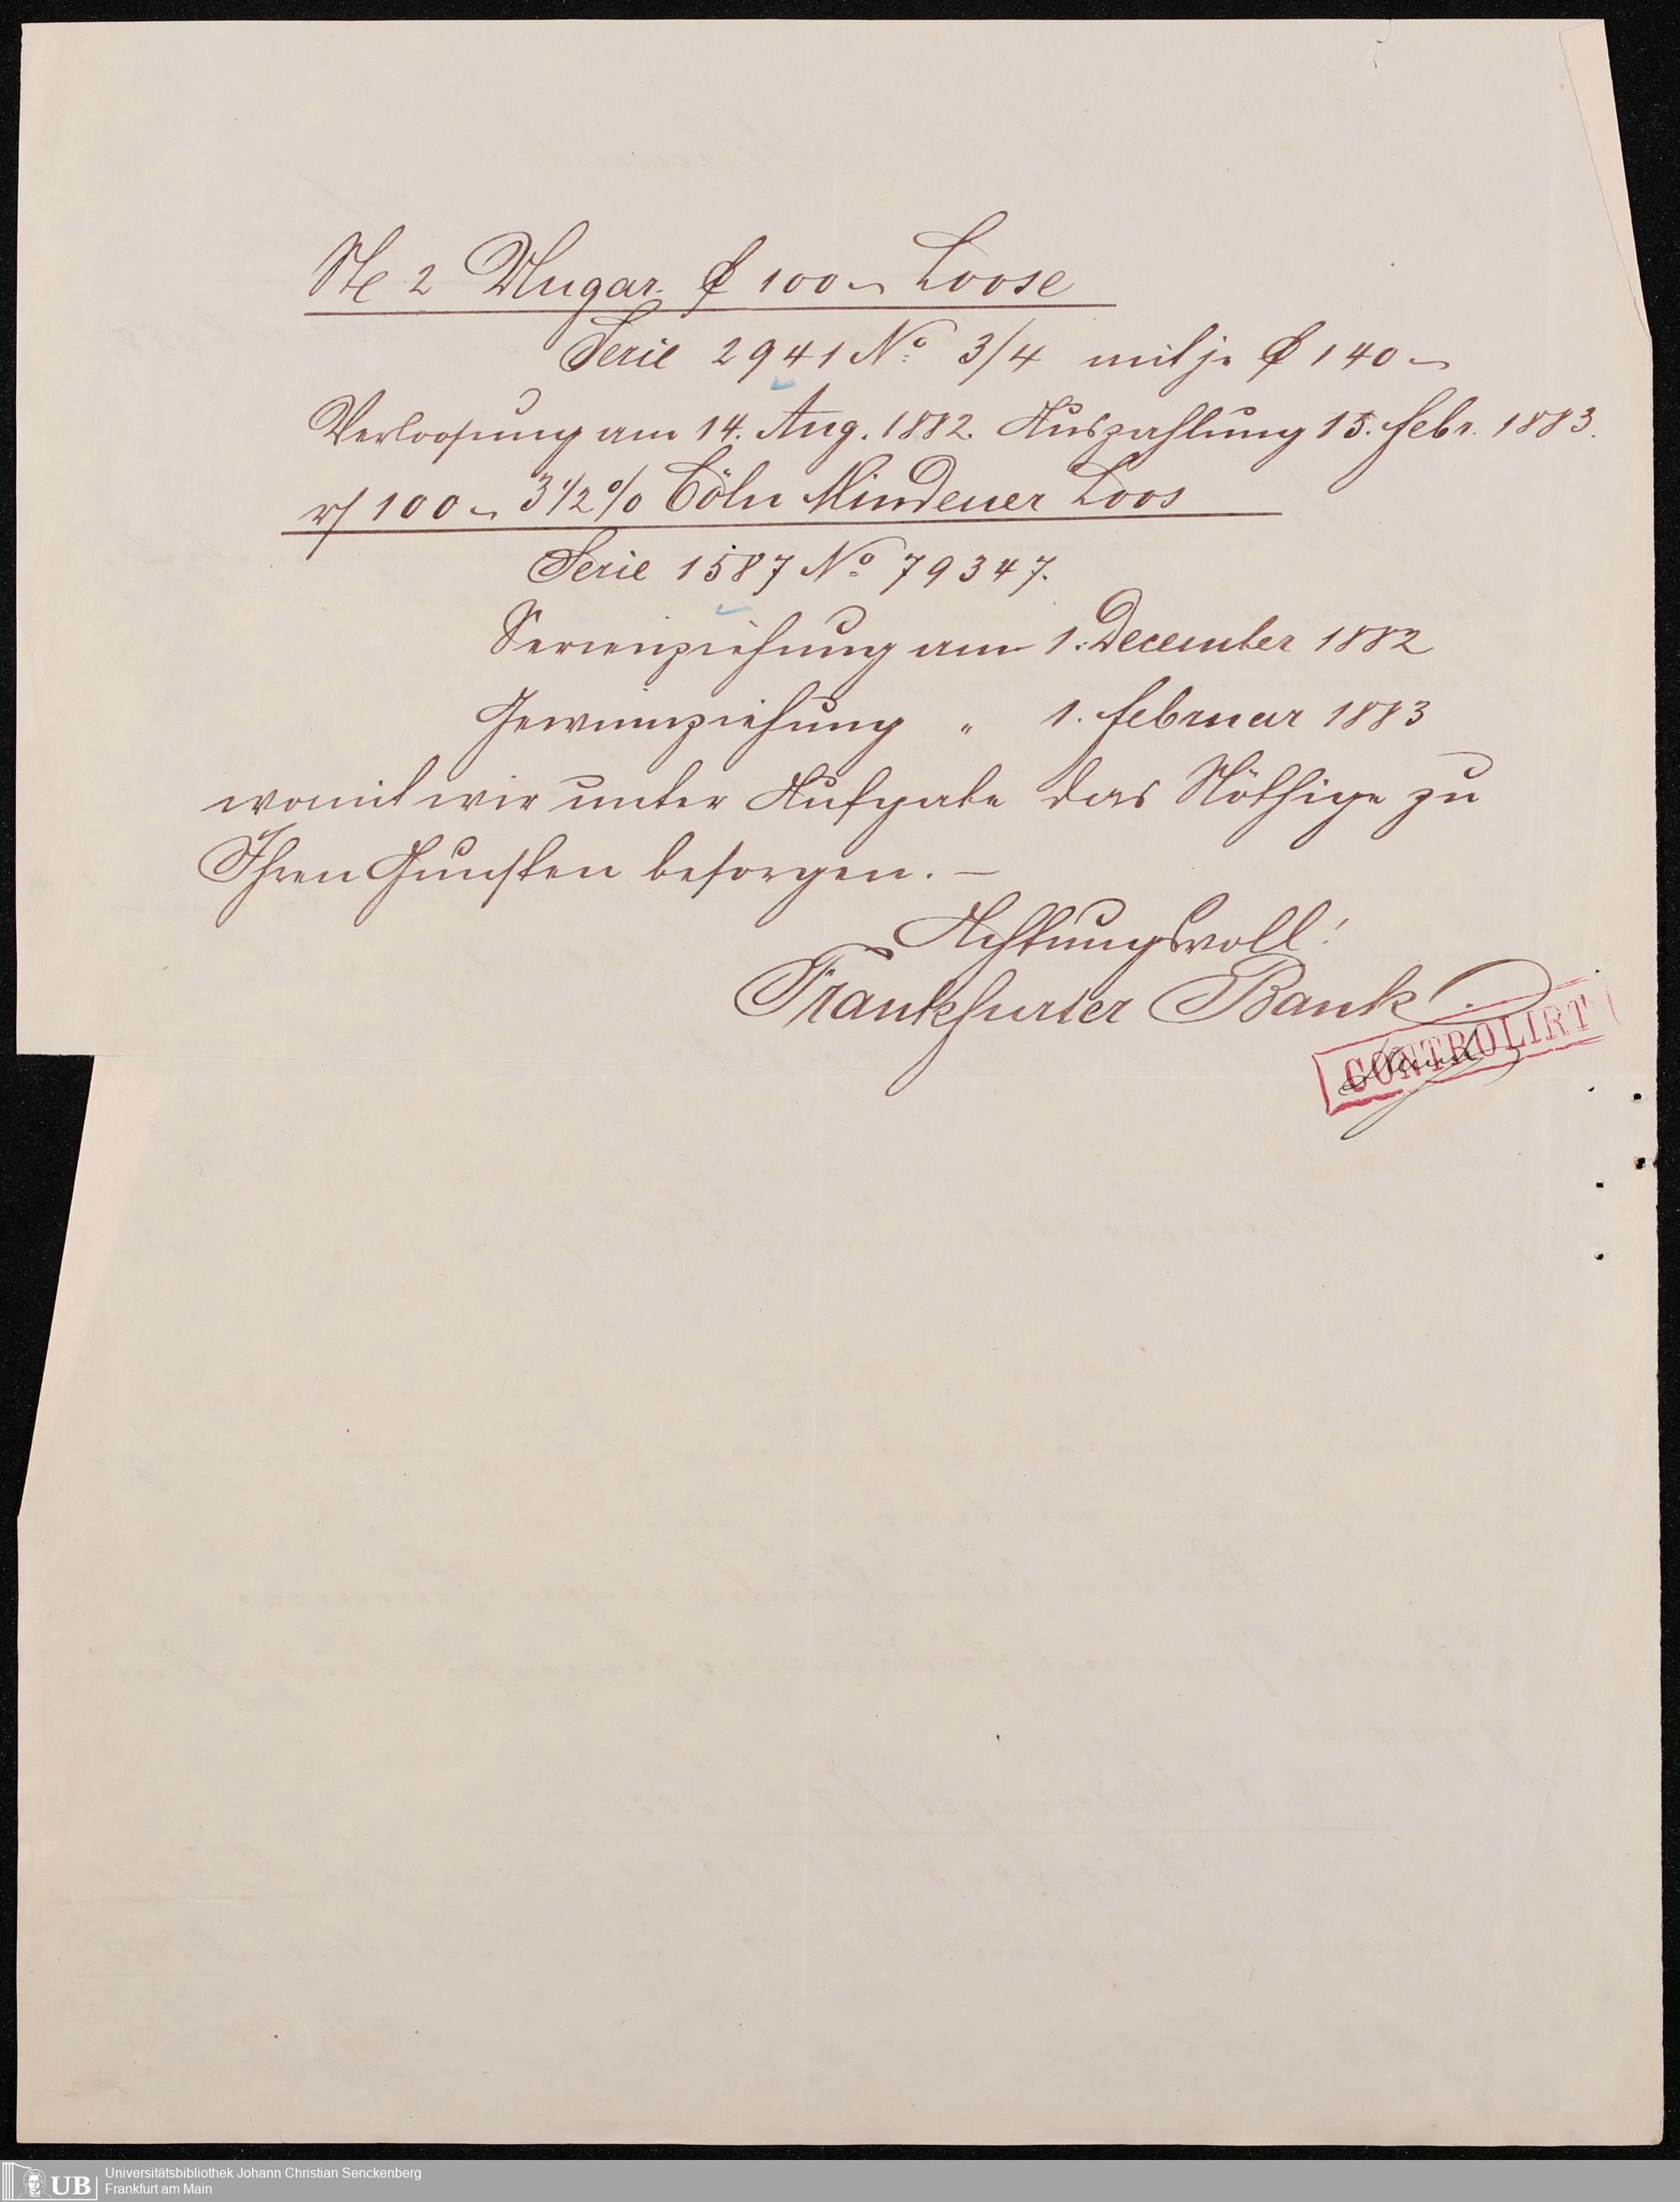 St 2 Ungar. fl 100 – Loose
Serie 2941 No 3/4 mit je fl 140 –
Verloosung am 14. Aug. 1882. Auszahlung 15. Febr. 1883.
rf 100 – 3 1/2 % Cöln Mindener Loos
Serie 1587 No 79347.
Serienziehung am 1. December 1882
Gewinnziehung " 1. Februar 1883
womit wir unter Aufgabe das Nöthige zu
Ihren Gunsten besorgen. –
Achtungsvoll!
Frankfurter Bank.
CONTROLIRT
UB
Universitätsbibliothek Johann Christian Senckenberg
Frankfurt am Main